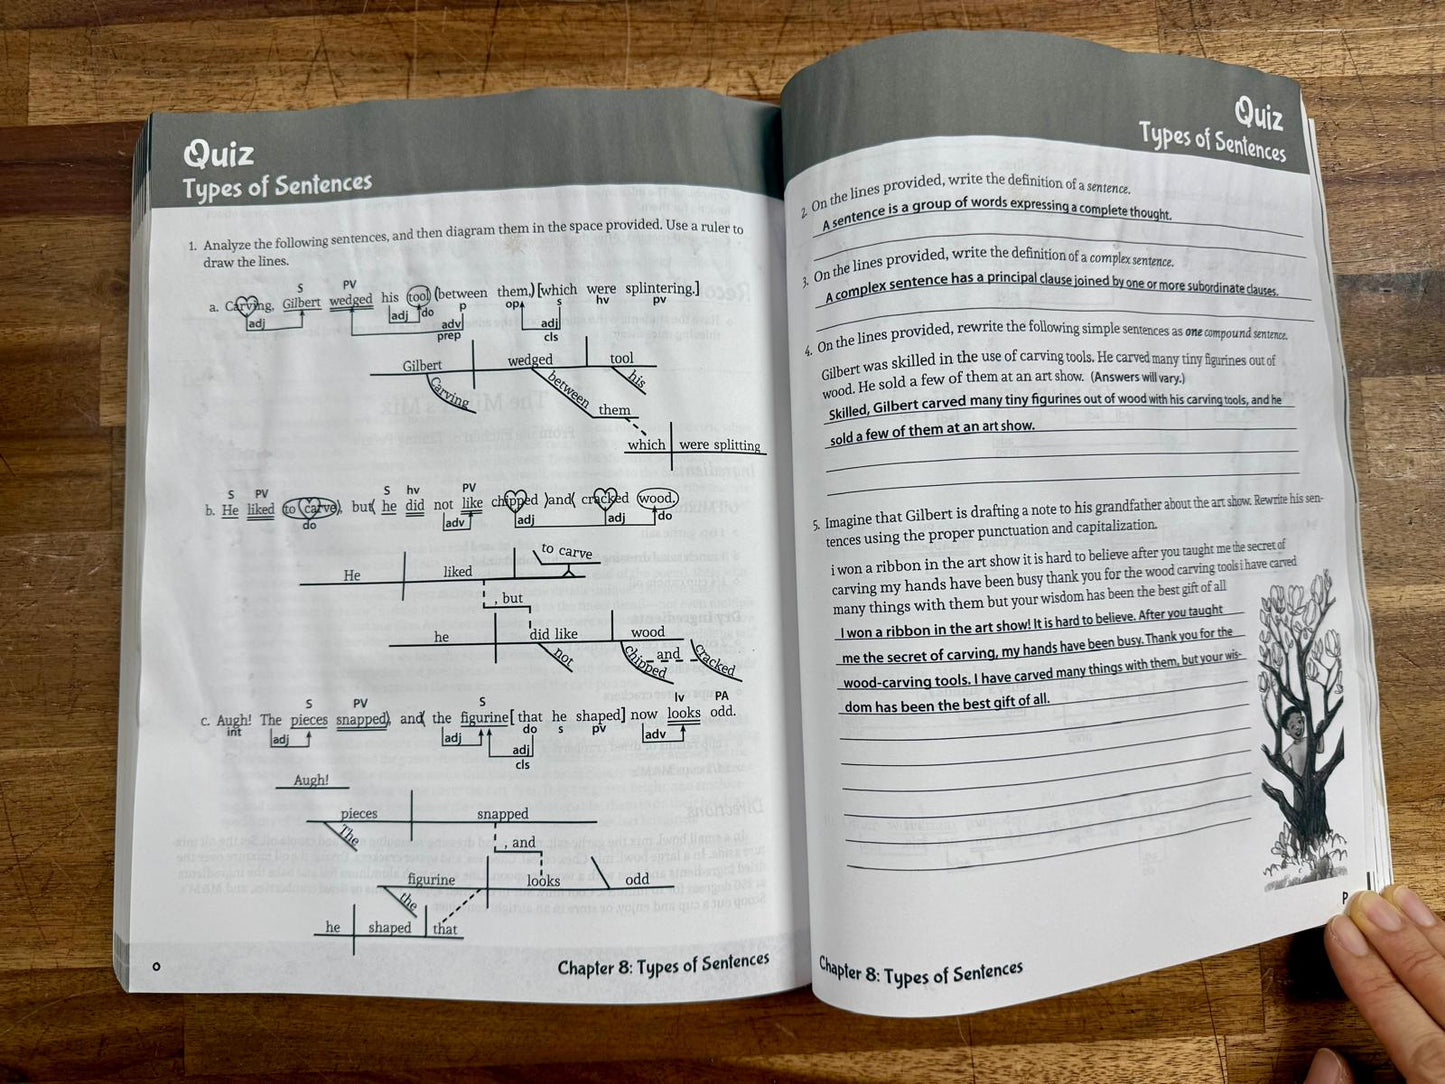 Quiz
Types of Sentences
1. Analyze the following sentences, and then diagram them in the space provided. Use a ruler to
draw the lines.
S PV
a. Carving, Gilbert wedged his tool (between them,) [which were splintering.]
adj adj do p op s hv pv
adv adj
prep cls
Gilbert wedged tool
Carving between his
them
which were splitting
S PV S hv PV
b. He liked (to carve), but( he did not like chipped )and( cracked wood.)
do adv adj adj do
to carve
He liked
, but
he did like wood
not chipped and cracked
S PV S lv PA
c. Augh! The pieces snapped), and( the figurine[ that he shaped] now looks odd.
int adj adj do s pv adv
adj
cls
Augh!
pieces snapped
The
, and
figurine looks odd
the
he shaped that
0
Chapter 8: Types of Sentences
Quiz
Types of Sentences
2. On the lines provided, write the definition of a sentence.
A sentence is a group of words expressing a complete thought.
3. On the lines provided, write the definition of a complex sentence.
A complex sentence has a principal clause joined by one or more subordinate clauses.
4. On the lines provided, rewrite the following simple sentences as one compound sentence.
Gilbert was skilled in the use of carving tools. He carved many tiny figurines out of
wood. He sold a few of them at an art show. (Answers will vary.)
Skilled, Gilbert carved many tiny figurines out of wood with his carving tools, and he
sold a few of them at an art show.
5. Imagine that Gilbert is drafting a note to his grandfather about the art show. Rewrite his sen-
tences using the proper punctuation and capitalization.
i won a ribbon in the art show it is hard to believe after you taught me the secret of
carving my hands have been busy thank you for the wood carving tools i have carved
many things with them but your wisdom has been the best gift of all
I won a ribbon in the art show! It is hard to believe. After you taught
me the secret of carving, my hands have been busy. Thank you for the
wood-carving tools. I have carved many things with them, but your wis-
dom has been the best gift of all.
Chapter 8: Types of Sentences